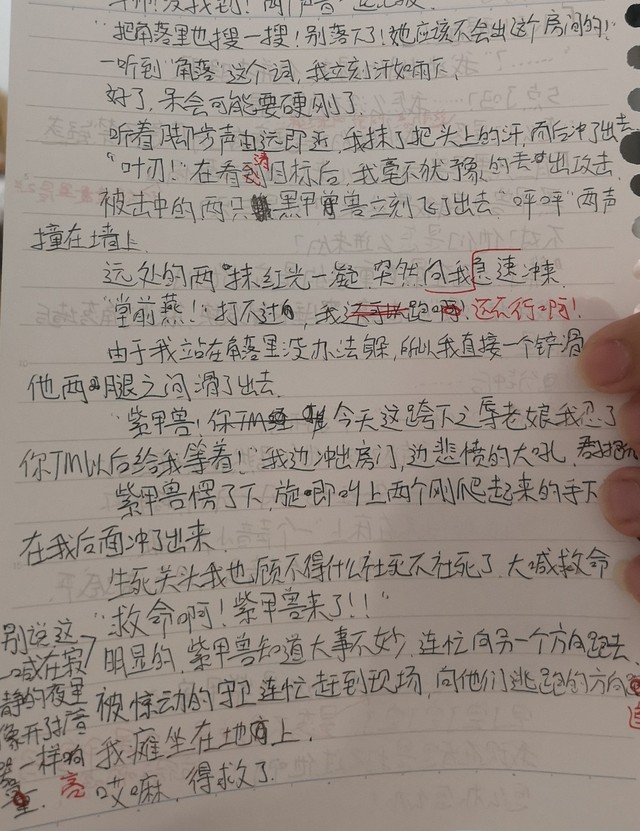 "把角落里也搜一搜！别落下了！她应该不会出这个房间的！
一听到"角落"这个词，我立刻汗如雨下，
好了，呆会可能要硬刚了
听着脚步声由远即近，我抹了把头上的汗，而后冲了出去
"叶刃！"在看清目标后，我毫不犹豫的丢出攻击，
被击中的两只黑甲兽立刻飞了出去"呯呯"两声
撞在墙上
远处的两抹红光一凝，突然向我急速冲来
"堂前燕！"打不过，我跑还不行啊！
由于我站在角落里没办法躲，所以我直接一个铲滑
他两腿之间滑了出去
"紫甲兽！你TM今天这跨下之辱老娘我忍了
你TM以后给我等着！"我边冲出房门，边悲愤的大吼
紫甲兽愣了下，旋即叫上两个刚爬起来的手下
在我后面冲了出来
生死关头我也顾不得什么社死不社死了，大喊救命
"救命啊！紫甲兽来了！！"
别说这一喊在寂静的夜里像开了一样响亮
明显的，紫甲兽知道大事不妙，连忙向另一个方向跑去
被惊动的守卫连忙赶到现场，向他们逃跑的方向追
我瘫坐在地上，
哎嘛，得救了